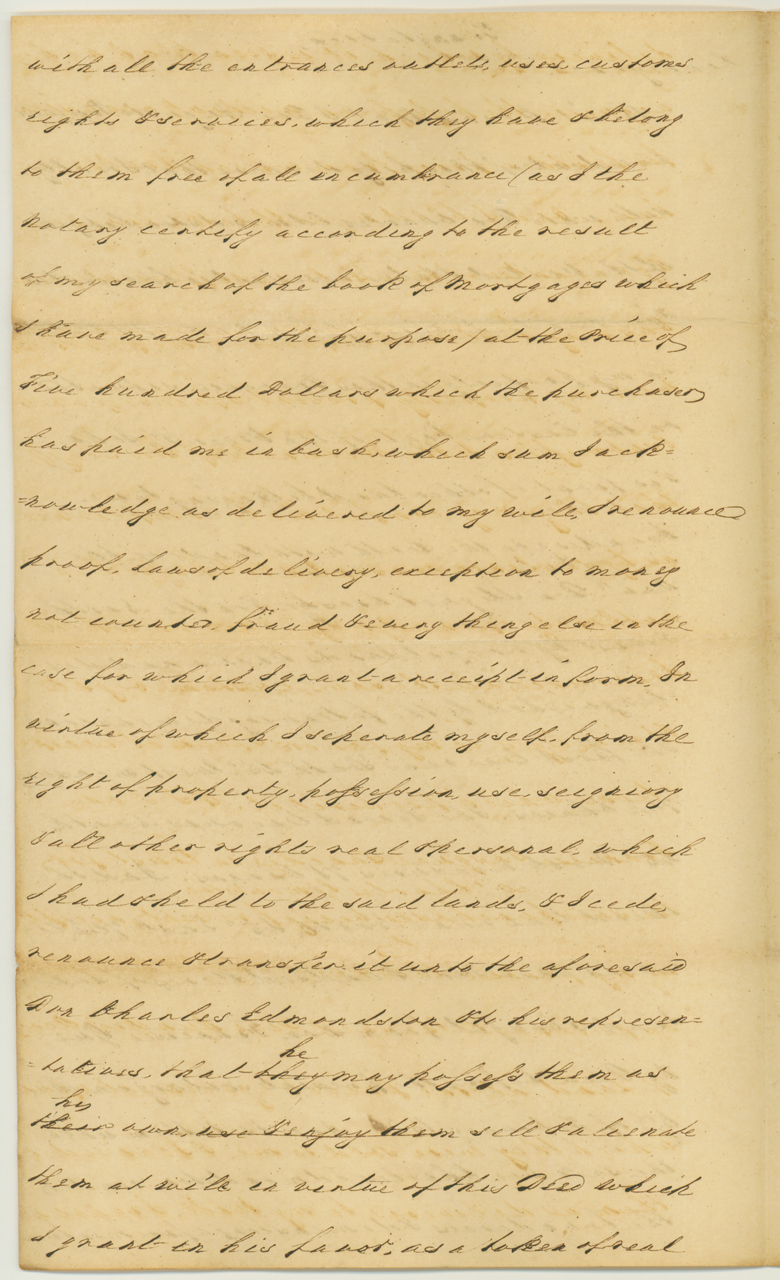 with all the entrances outlets, uses, customs
rights & services, which they have & belong
to them free of all incumbrance (as I the
notary certify according to the result
of my search of the book of Mortgages which
I have made for the purpose) at the Price of
Five hundred Dollars which the purchaser
has paid me in Cash, which sum I ack=
=nowledge as delivered to my will, I renounce
proof, laws of delivery, exception to money
not counted, Fraud & every thing else in the
case for which I grant a receipt in form. In
virtue of which I seperate myself, from the
right of property, possession, use, seigniory
& all other rights real & personal, which
I had & held to the said lands, & I cede,
renounce & transfer it unto the aforesaid
Don Charles Edmondston & to his represen=
he
=tatives, that they may possess them as
his
their own, use & enjoy them sell & alienate
them at will in virtue of this Deed which
I grant in his favor, as a token of real